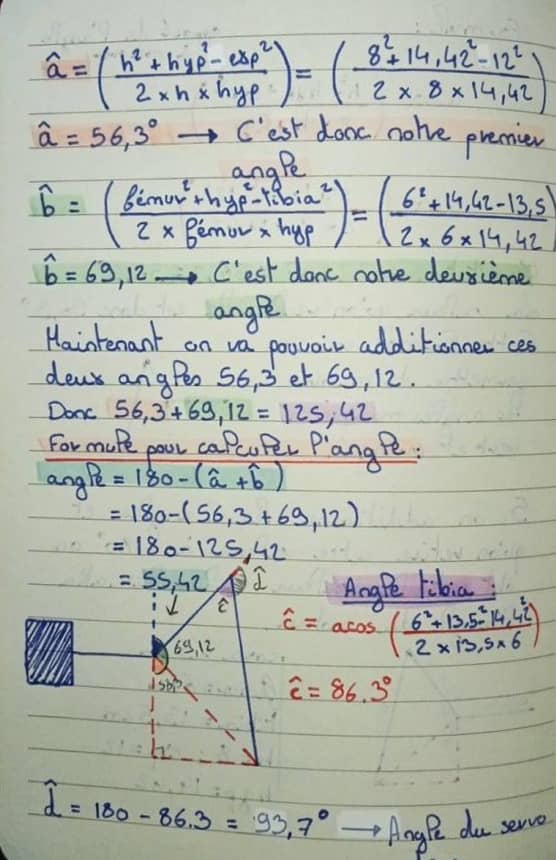 â = (h² + hyp² - exp² / 2 x h x hyp) = (8² + 14,42² - 12² / 2 x 8 x 14,42)
â = 56,3° → C'est donc notre premier
angle
b̂ = (fémur² + hyp² - tibia² / 2 x fémur x hyp) = (6² + 14,42 - 13,5 / 2 x 6 x 14,42)
b̂ = 69,12 → C'est donc notre deuxième
angle
Maintenant on va pouvoir additionner ces
deux angles 56,3 et 69,12.
Donc 56,3 + 69,12 = 125,42
Formule pour calculer l'angle :
angle = 180 - (â + b̂)
= 180 - (56,3 + 69,12)
= 180 - 125,42
= 55,42
d̂
ĉ
Angle tibia :
69,12
ĉ = acos (6² + 13,5² - 14,42² / 2 x 13,5 x 6)
ĉ = 86.3°
d̂ = 180 - 86.3 = 93,7° → Angle du servo